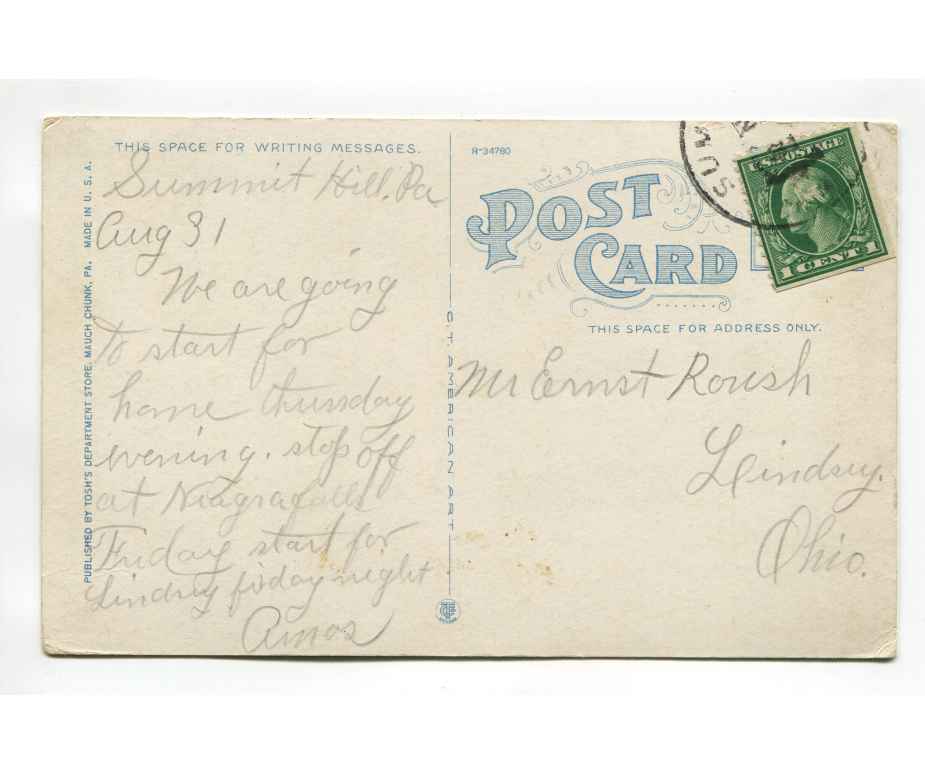 THIS SPACE FOR WRITING MESSAGES.
Summit Hill. Pa
Aug 31
We are going
to start for
home thursday
evening. stop off
at Niagrafalls
Friday start for
Lindsey friday night
Amos
PUBLISHED BY TOSH'S DEPARTMENT STORE, MAUCH CHUNK, PA. MADE IN U. S. A.
C.T. AMERICAN ART
R-34780
POST
CARD
THIS SPACE FOR ADDRESS ONLY.
Mr Ernst Roush
Lindsey.
Ohio.
SUM
U.S. POSTAGE
1 CENT 1